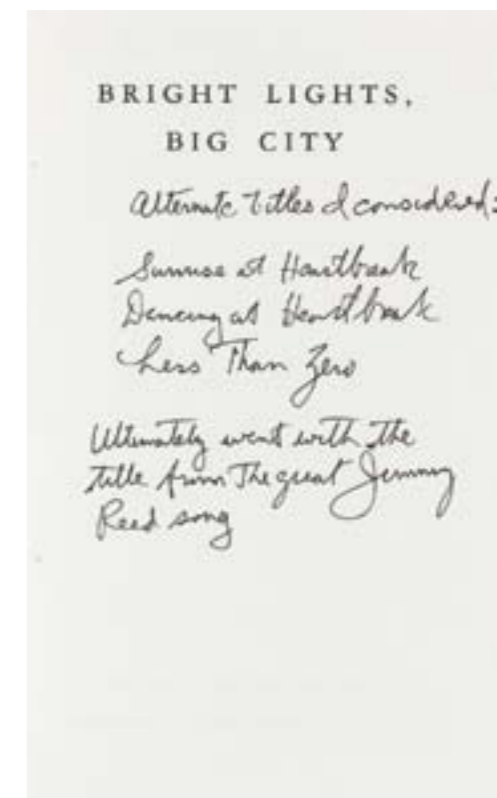 BRIGHT LIGHTS,
BIG CITY
Alternate Titles I considered:
Sunrise at Heartbreak
Dancing at Heartbreak
Less Than Zero
Ultimately went with the
title from The great Jimmy
Reed song